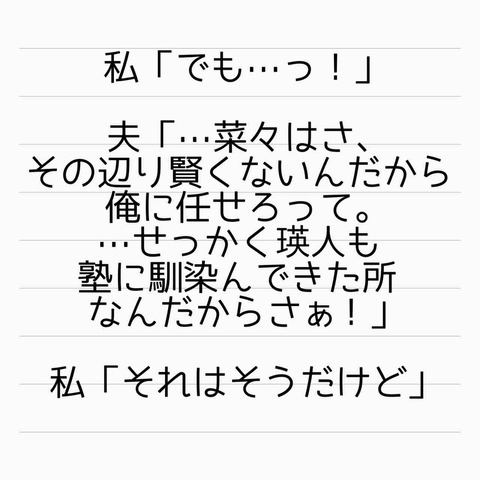 私「でも…っ！」
夫「…菜々はさ、
その辺り賢くないんだから
俺に任せろって。
…せっかく瑛人も
塾に馴染んできた所
なんだからさぁ！」
私「それはそうだけど」